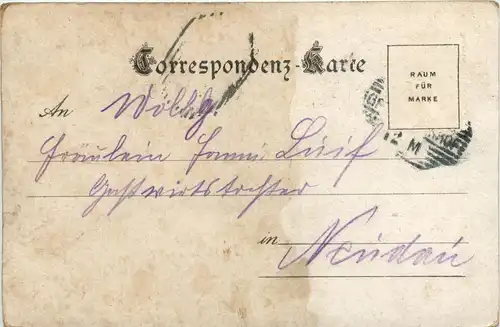 Correspondenz-Karte
RAUM
FÜR
MARKE
An Wohlg.
Fräulein Fanni Luif
Gastwirtstochter
in Neudau
12 M